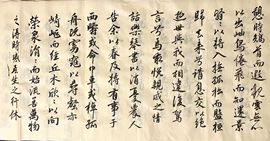 憩時矯首而遐觀雲無心
以出岫鳥倦飛而知還景翳
翳以將入撫孤松而盤桓
歸去來兮請息交以絕
遊世與我而相違復駕
言兮焉求悅親戚之情
話樂琴書以消憂農人
告余以春及將有事于
西疇或命巾車或棹孤
舟既窈窕以尋壑亦
崎嶇而經丘木欣欣以向
榮泉涓涓而始流善萬物
之得時感吾生之行休